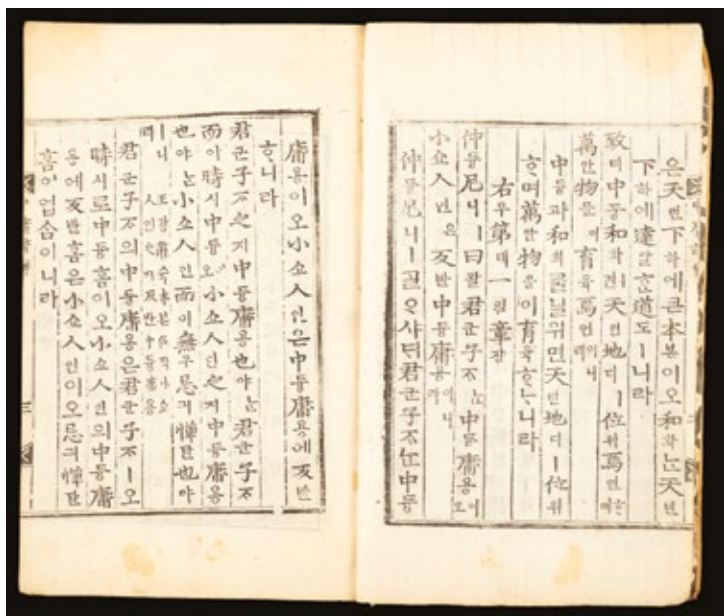 은天텬下하에큰本본이오和화ᄂᆞᆫ天텬
下하에達달ᄒᆞᆫ道도ㅣ니라
致티中듕和화ᄒᆞ면天텬地디ㅣ位위焉언ᄒᆞ며
萬만物믈이育육焉언이니라
中듕과和화ᄅᆞᆯ닐위면天텬地디ㅣ位위
ᄒᆞ며萬만物믈이育육ᄒᆞᄂᆞ니라
右우第뎨一일章장
仲듕尼니ㅣ曰왈君군子ᄌᆞᄂᆞᆫ中듕庸용이오
小쇼人인은反반中듕庸용이니라
仲듕尼니ㅣᄀᆞᆯᄋᆞ샤ᄃᆡ君군子ᄌᆞᄂᆞᆫ中듕
庸용이오小쇼人인은中듕庸용에反반
ᄒᆞ니라
君군子ᄌᆞ之지中듕庸용也야ᄂᆞᆫ君군子ᄌᆞ
而이時시中듕오小쇼人인之지中듕庸용
也야ᄂᆞᆫ小쇼人인而이無무忌긔憚탄也야
ㅣ니라
王왕肅슉本본作작小쇼
人인之지反반中듕庸용
君군子ᄌᆞ의中듕庸용은君군子ᄌᆞㅣ오
時시로中듕홈이오小쇼人인의中듕庸
용에反반홈은小쇼人인이오忌긔憚탄
홈이업슴이니라